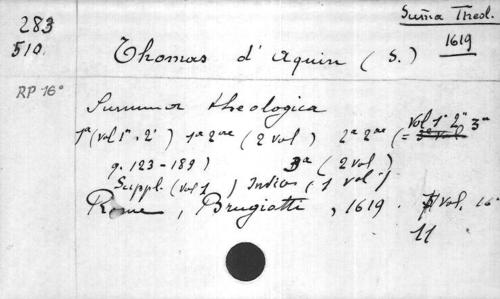 283
510
RP 16°
Suma Theol.
1619
Thomas d'Aquin (S.)
Summa theologica
1ª (vol 1°, 2°) 1ª 2ªᵉ (2 vol) 2ª 2ªᵉ (= vol 1° 2° 3ª
q. 123-189) 3ª (2 vol)
Suppl. (vol 1) Indices (1 vol)
Rome, Brugiotti, 1619. vol. 16°
11